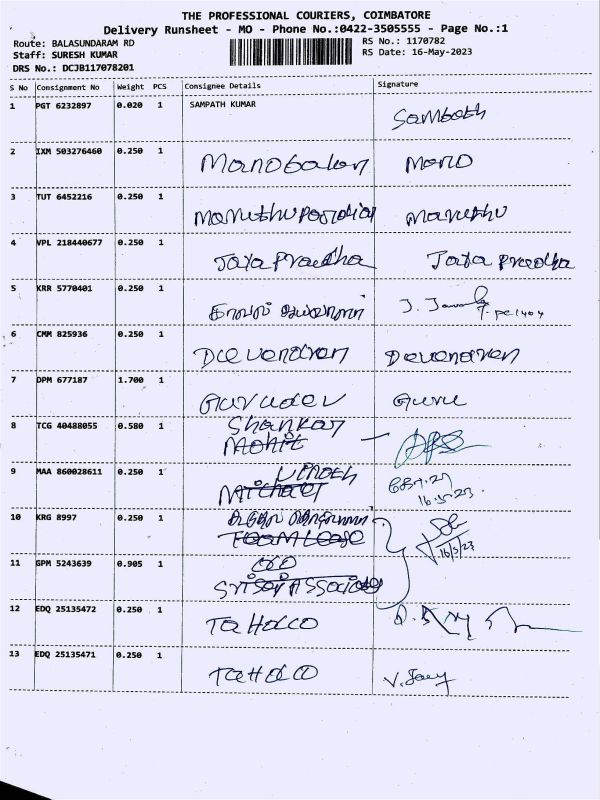 THE PROFESSIONAL COURIERS, COIMBATORE
Delivery Runsheet - MO - Phone No.:0422-3505555 - Page No.:1
Route: BALASUNDARAM RD RS No.: 1170782
Staff: SURESH KUMAR RS Date: 16-May-2023
DRS No.: DCJB117078201
S No Consignment No Weight PCS Consignee Details Signature
1 PGT 6232897 0.020 1 SAMPATH KUMAR Sambath
2 IXM 503276460 0.250 1 Manobalan Mano
3 TUT 6452216 0.250 1 Maruthupandian Maruthu
4 VPL 218440677 0.250 1 Jaya Pradha Jaya Pradha
5 KRR 5770401 0.250 1
6 CMM 825936 0.250 1 Devendran Devendran
7 DPM 677187 1.700 1 Gurudev Guru
8 TCG 40488055 0.580 1 Shankar
Mohit
9 MAA 860028611 0.250 1 Vinoth
Michael 16.5.23
10 KRG 8997 0.250 1
Team Lease 16/5/23
11 GPM 5243639 0.905 1
Sri Sai Associates
12 EDQ 25135472 0.250 1 TAHDCO
13 EDQ 25135471 0.250 1 TAHDCO